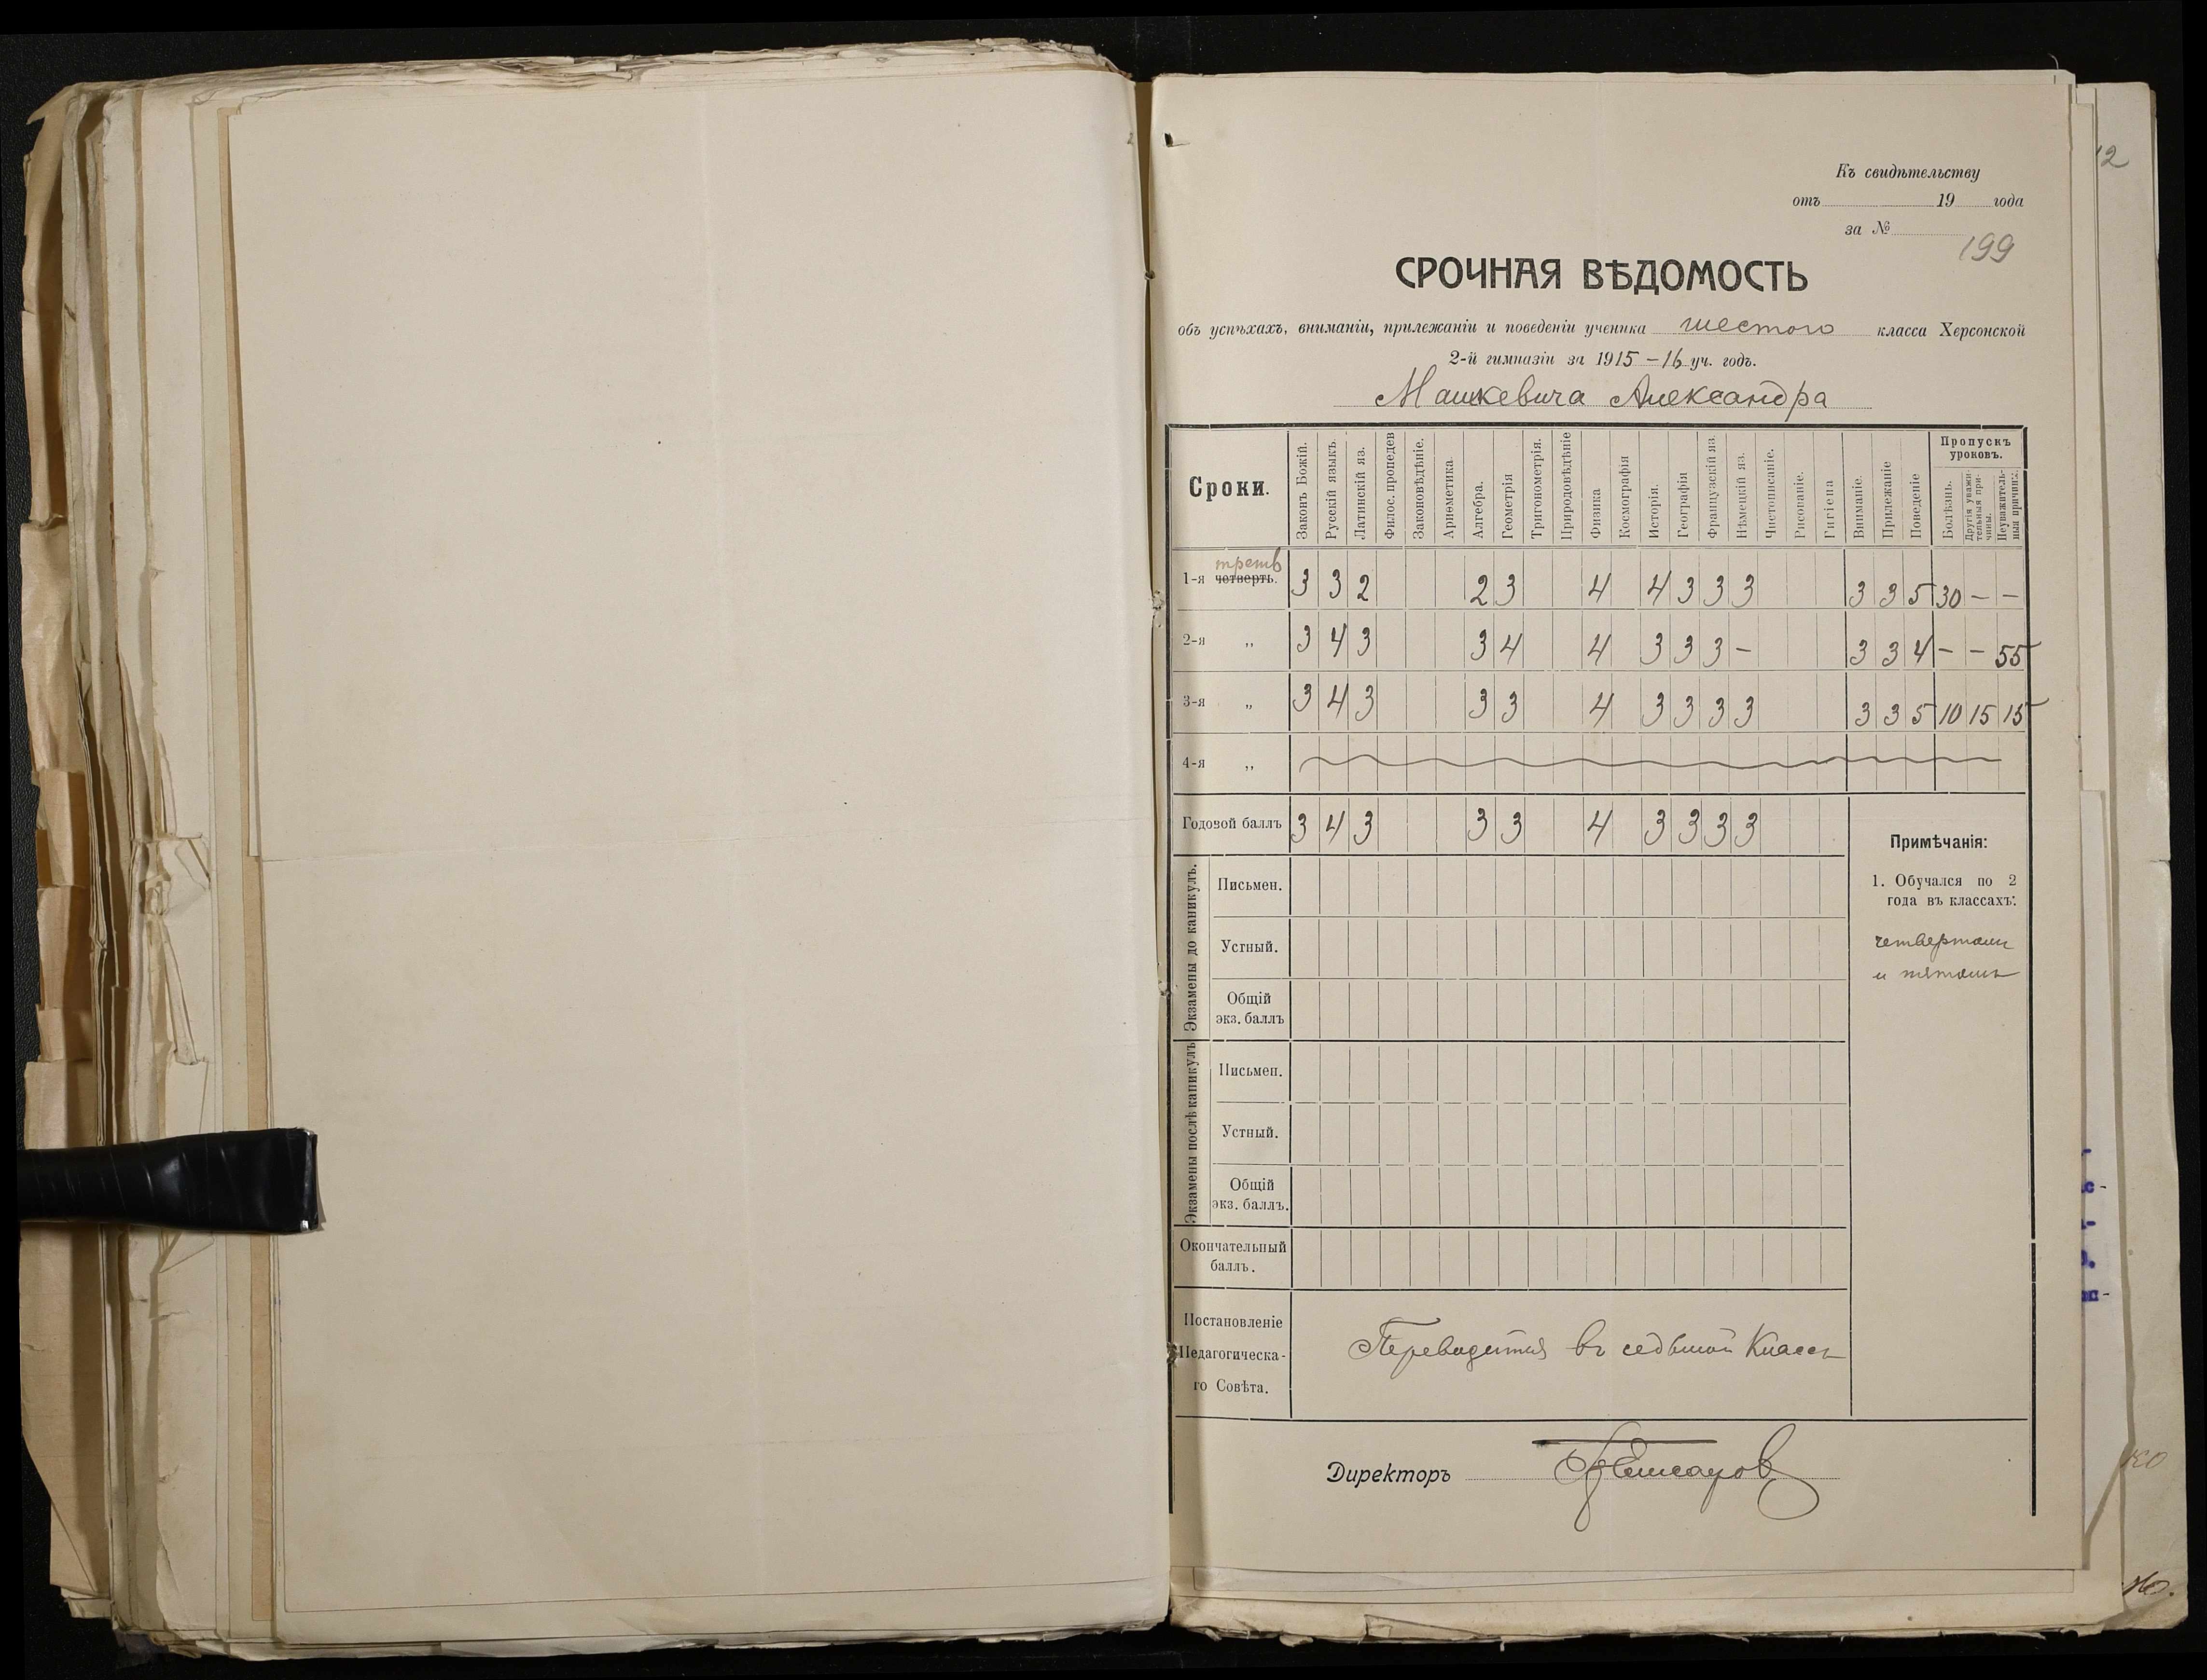 Къ свидѣтельству
отъ 19 года
за №
199
СРОЧНАЯ ВѢДОМОСТЬ
объ успѣхахъ, вниманіи, прилежаніи и поведеніи ученика шестого класса Херсонской
2-й гимназіи за 1915-16 уч. годъ.
Машкевича Александра
Сроки. Законъ Божій. Русскій языкъ. Латинскій яз. Филос. пропедев Законовѣдѣніе. Ариѳметика Алгебра. Геометрія Тригонометрія. Природовѣдѣніе Физика Космографія Исторія. Географія Французскій яз. Нѣмецкій яз. Чистописаніе. Рисованіе. Гигіена Вниманіе. Прилежаніе Поведеніе Пропускъ уроковъ. Болѣзнь. Другія уважительныя причины. Неуважительныя причины.
треть
1-я четверть. 3 3 2 2 3 4 4 3 3 3 3 3 5 30 — —
2-я „ 3 4 3 3 4 4 3 3 3 — 3 3 4 — — 55
3-я „ 3 4 3 3 3 4 3 3 3 3 3 3 5 10 15 15
4-я „
Годовой баллъ 3 4 3 3 3 4 3 3 3 3
Примѣчанія:
1. Обучался по 2
года въ классахъ:
четвертомъ
и пятомъ
Экзамены до каникулъ.
Письмен.
Устный.
Общій
экз. баллъ
Экзамены послѣ каникулъ
Письмен.
Устный.
Общій
экз. баллъ.
Окончательный
баллъ.
Постановленіе
Педагогическа-
го Совѣта.
Переводится въ седьмой классъ
Директоръ
12
ко